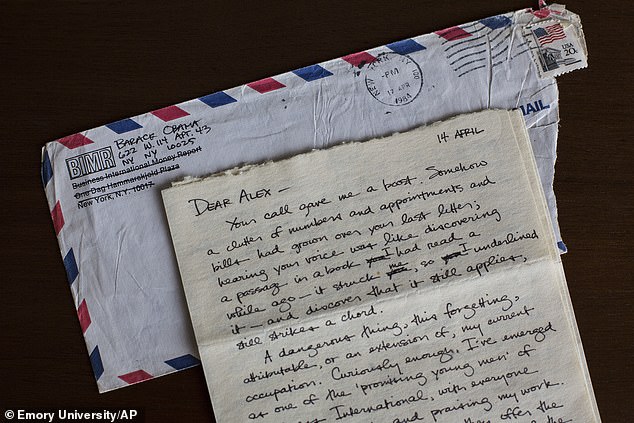 NEW YORK, NY
PM
17 APR
1984
USA
20c
MAIL
BARACK OBAMA
622 W. 114 APT. 43
NY NY 10025
BIMR
Business International Money Report
One Dag Hammarskjold Plaza
New York, N.Y. 10017
14 APRIL
DEAR ALEX —
Your call gave me a boost. Somehow
a clutter of numbers and appointments and
bills had grown over your last letter;
hearing your voice was like discovering
a passage in a book I had read a
while ago — it struck me, so I underlined
it — and discover that it still applies,
still strikes a chord.
A dangerous thing, this forgetting,
attributable, or an extension of, my current
occupation. Curiously enough, I've emerged
as one of the "promising young men" of
International, with everyone
and praising my work.
offer the
the
© Emory University/AP